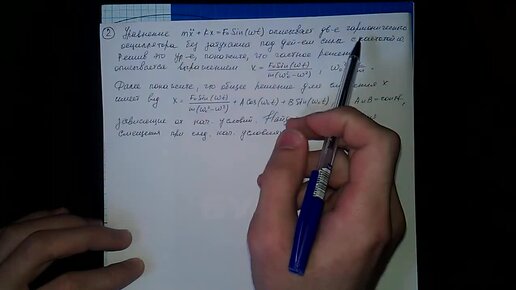 ② Уравнение mẍ + kx = F₀Sin(ωt) описывает дв-е гармонического
осциллятора без затухания под дей-ем силы с частотой ω,
Решив это ур-е, покажите, что частное решение
описывается выражением x = F₀Sin(ωt) / m(ω₀² - ω²), ω₀²
Далее покажите, что общее решение для смещения x
имеет вид x = F₀Sin(ωt) / m(ω₀² - ω²) + A Cos(ω₀t) + B Sin(ω₀t), A и B = const,
зависящие от нач. условий.
смещения при след. нач. условиях